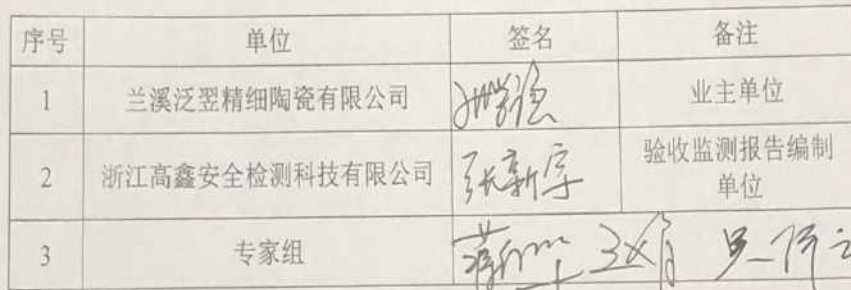 序号 单位 签名 备注
1 兰溪泛翌精细陶瓷有限公司 业主单位
2 浙江高鑫安全检测科技有限公司 张新宇 验收监测报告编制
单位
3 专家组